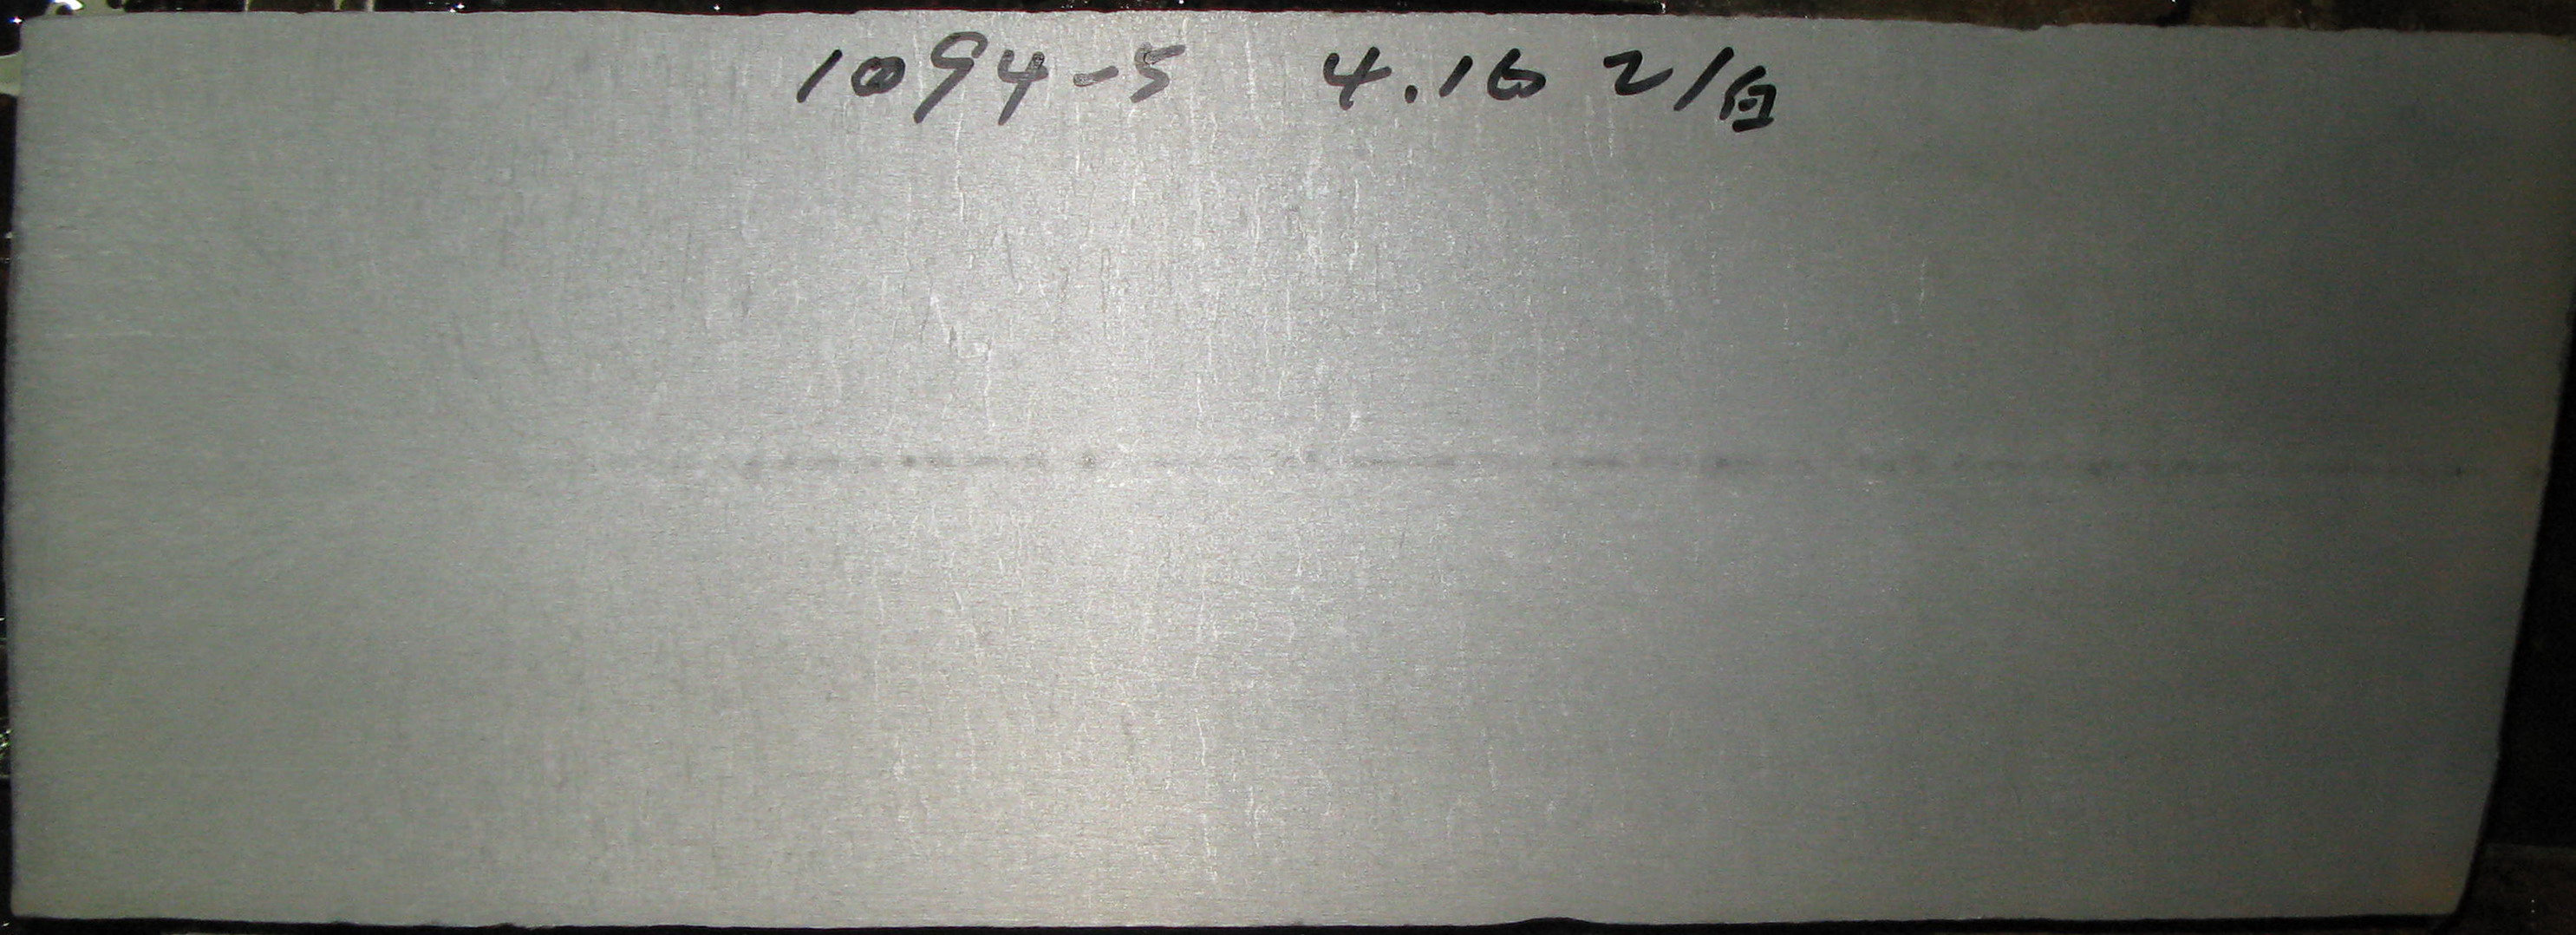 1094-5 4.16 2/白